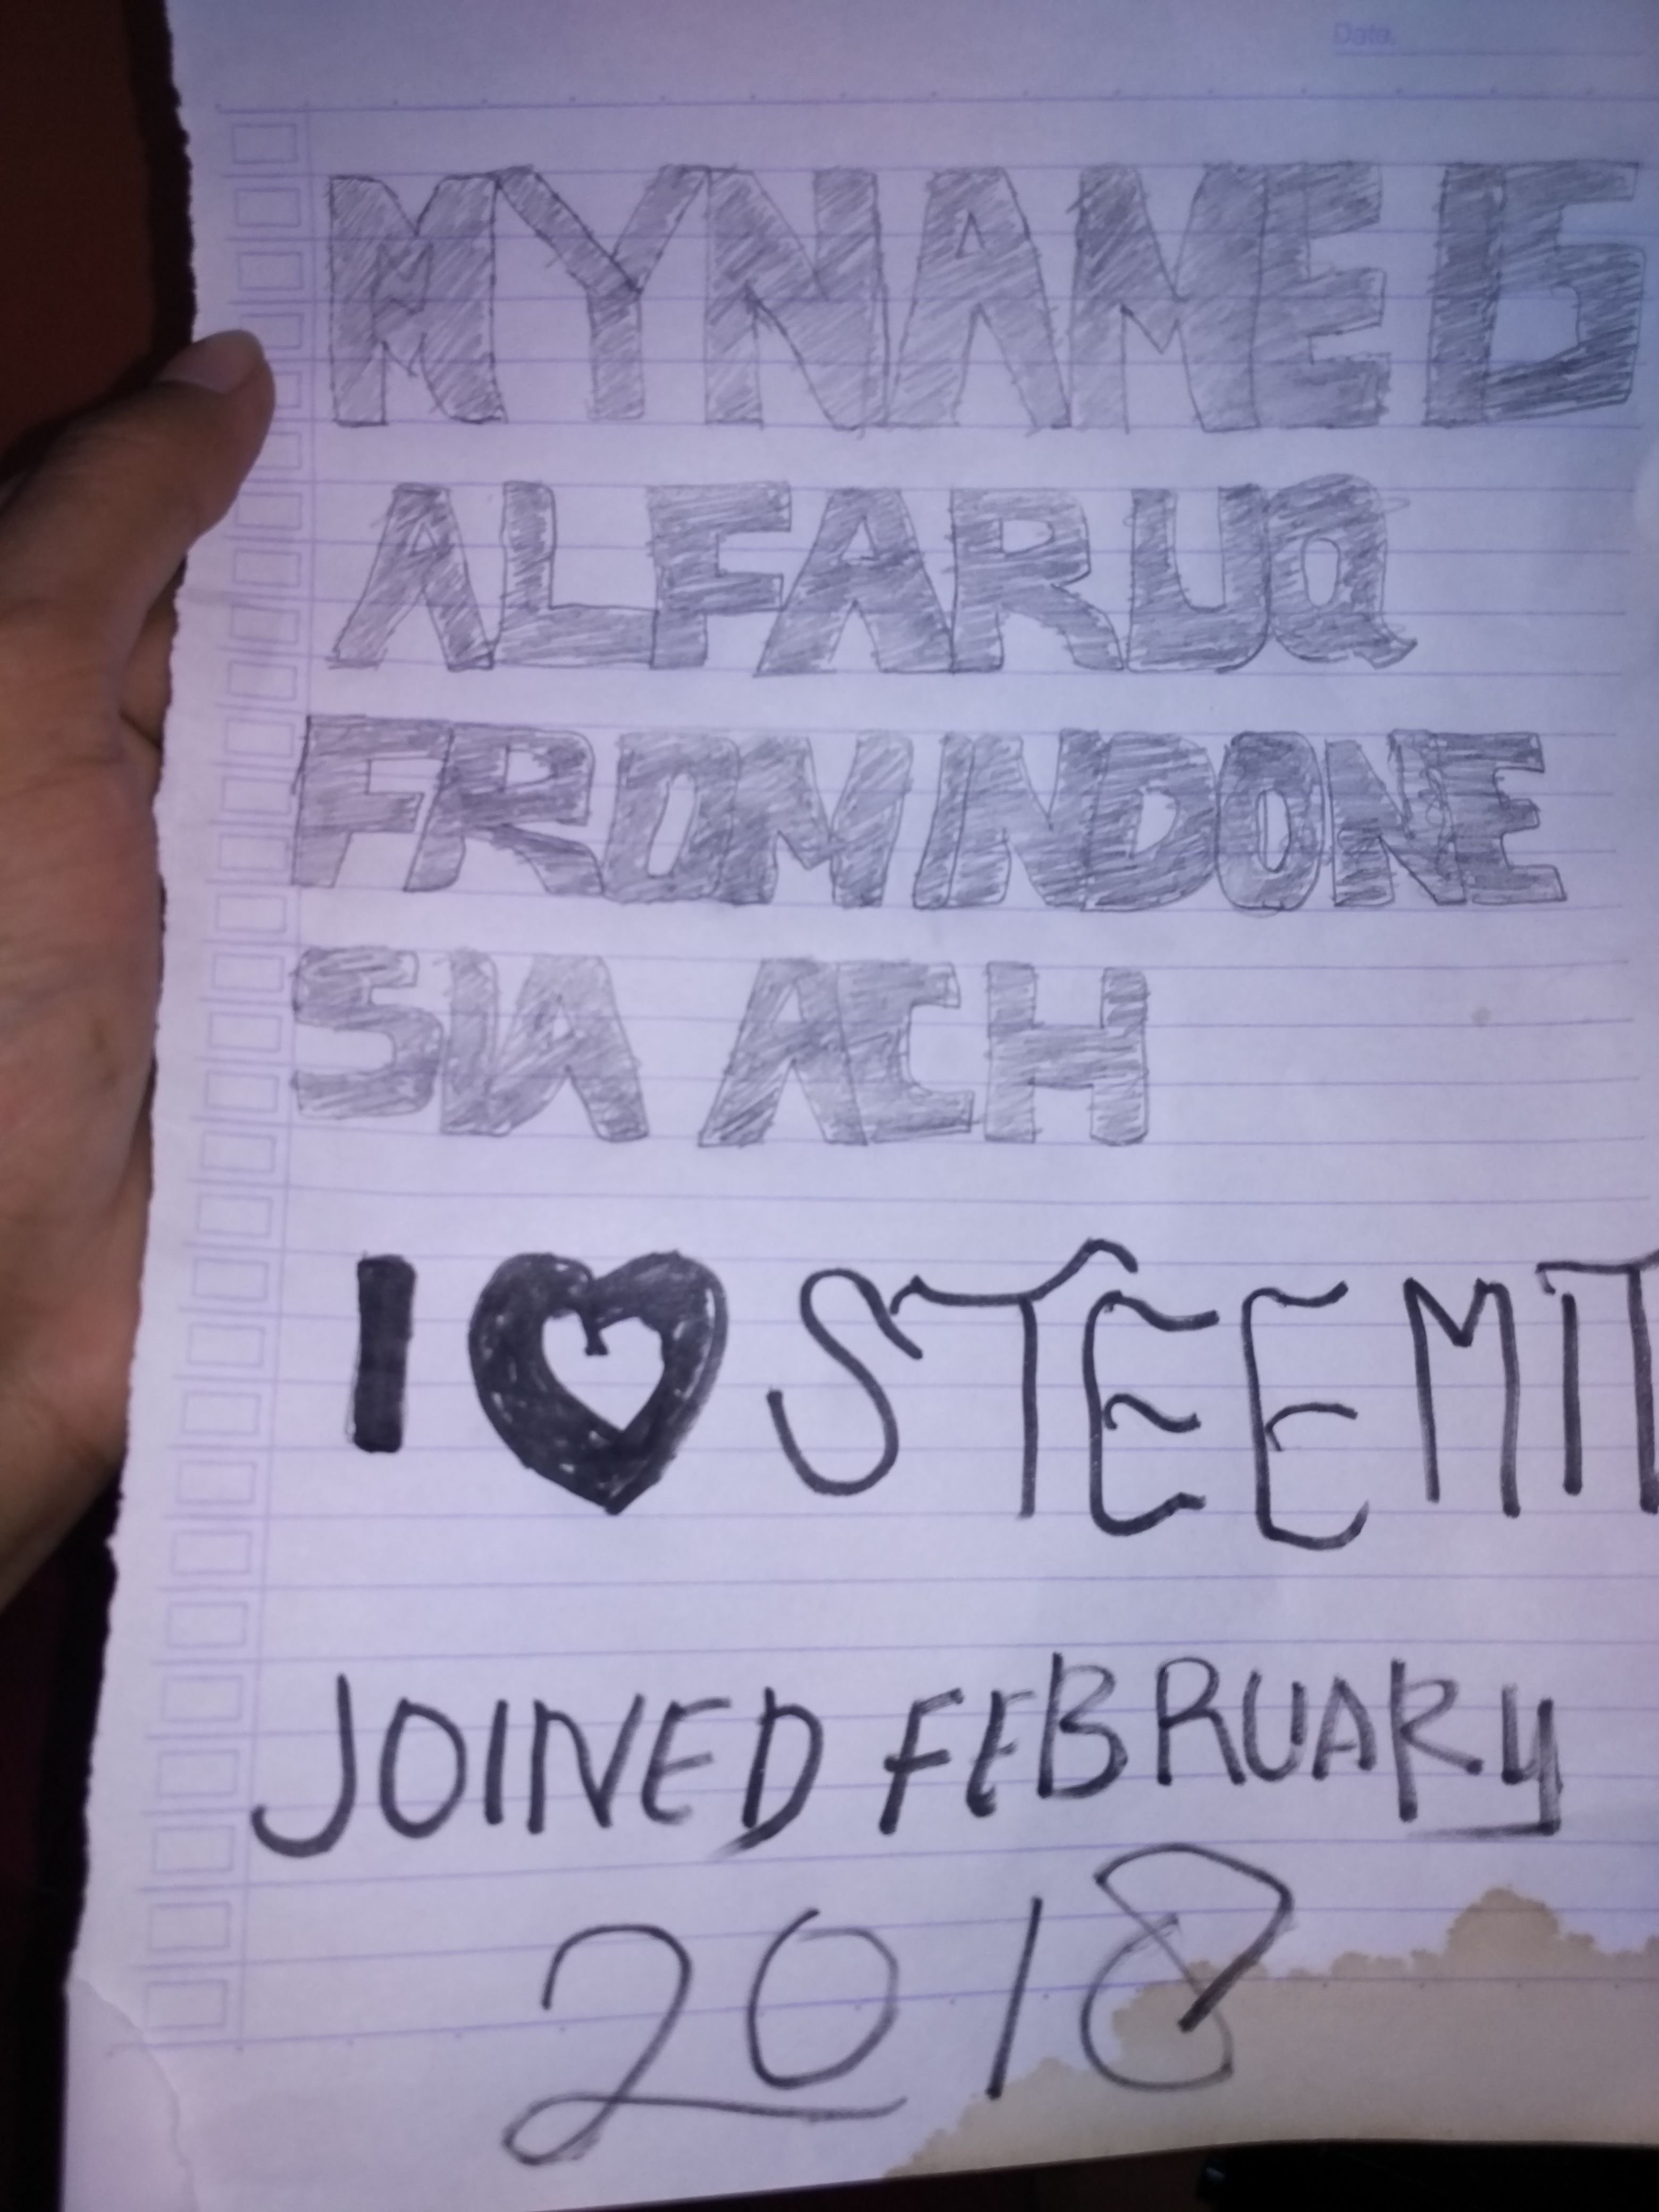 Date
MY NAME IS
ALFARUQ
FROM INDONE
SIA ACH
I ♥ STEEMIT
JOINED FEBRUARY
2018